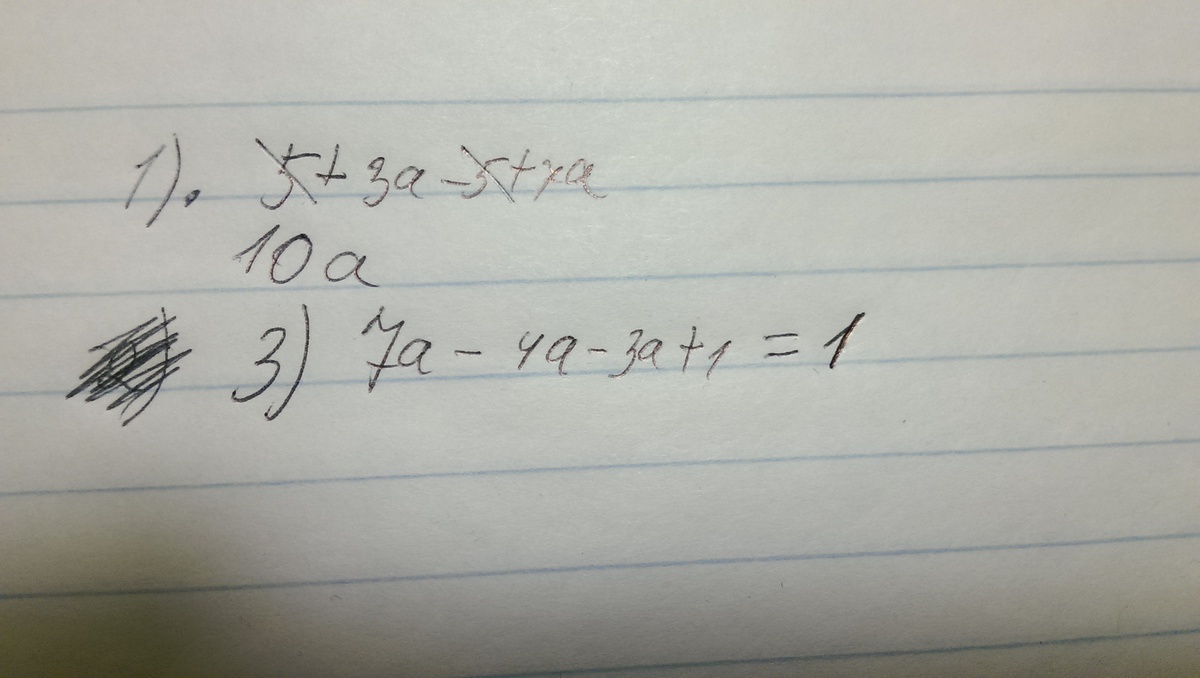 1). 5 + 3a - 5 + 7a
10a
3) 7a - 4a - 3a + 1 = 1